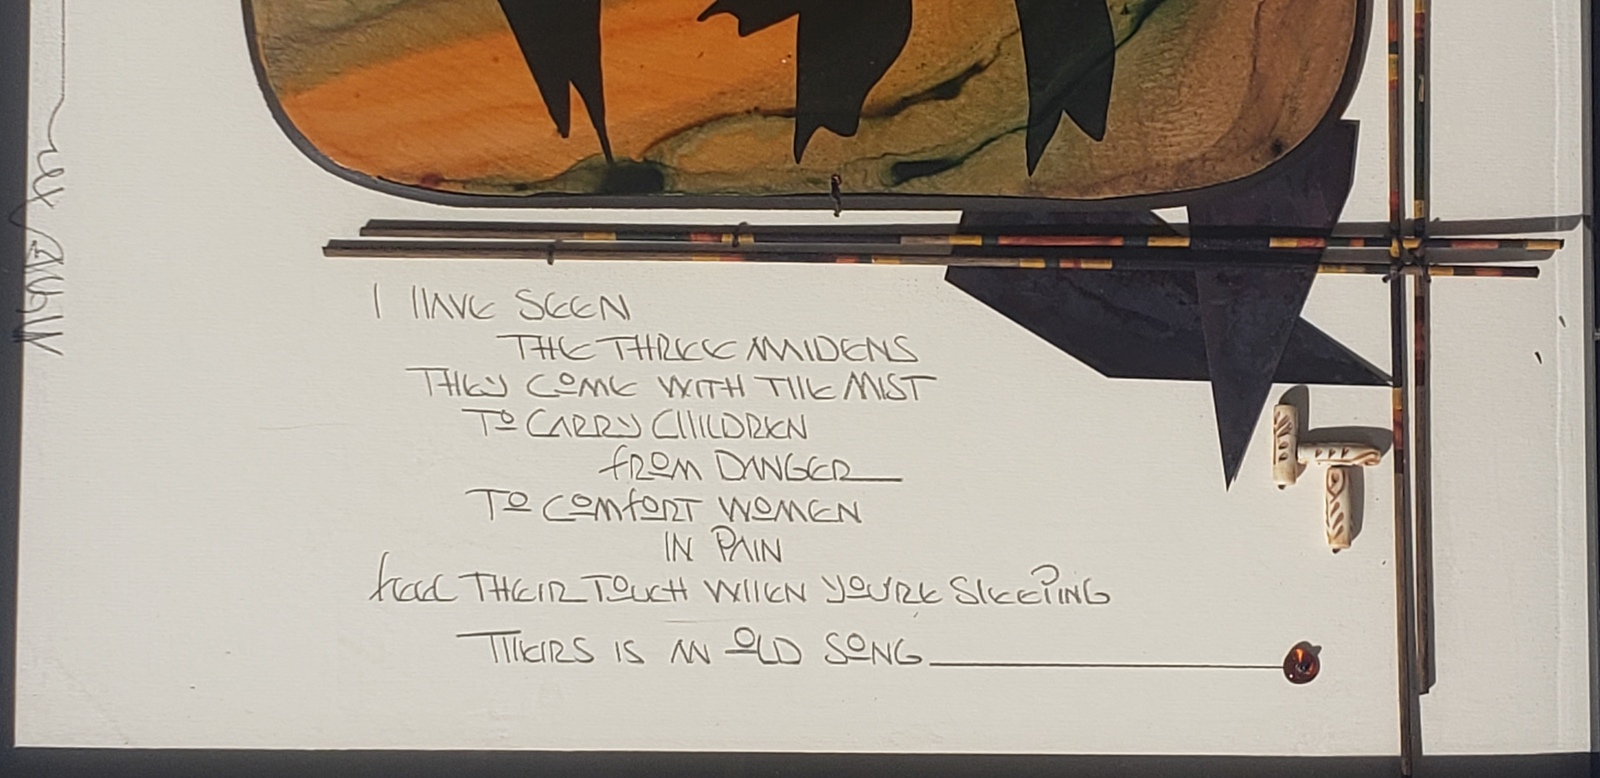 I HAVE SEEN
THE THREE MAIDENS
THEY COME WITH THE MIST
TO CARRY CHILDREN
fROM DANGER
TO COMfORT WOMEN
IN PAIN
feel THEIR TOUCH WHEN YOU'RE SLEEPING
THEIRS IS AN OLD SONG